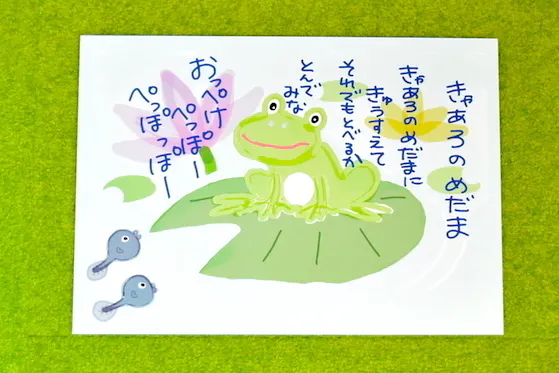 きゃあろのめだま
きゃあろのめだまに
きゅうすえて
それでもとべるか
とんでみな
おっぺけぺっぽー
ぺっぽっぽー